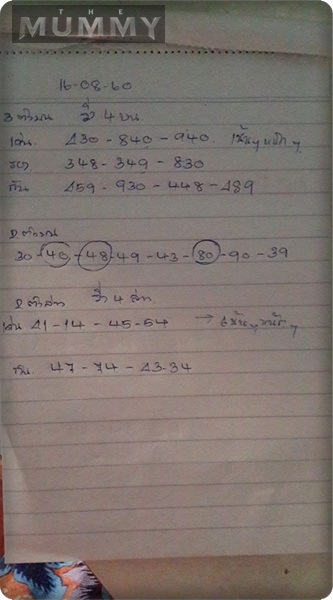 THE
MUMMY
16-08-60
3 ตัวบน 4 บน
เด่น 430 - 840 - 940. เน้นๆ หนักๆ
รอง 348 - 349 - 830
กัน 459 - 930 - 448 - 489
2 ตัวบน
30 - 40 - 48 - 49 - 43 - 80 - 90 - 39
2 ตัวล่าง 4 ล่าง
เด่น 41 - 14 - 45 - 54 → เน้นๆ หนักๆ
กัน 47 - 74 - 43 - 34